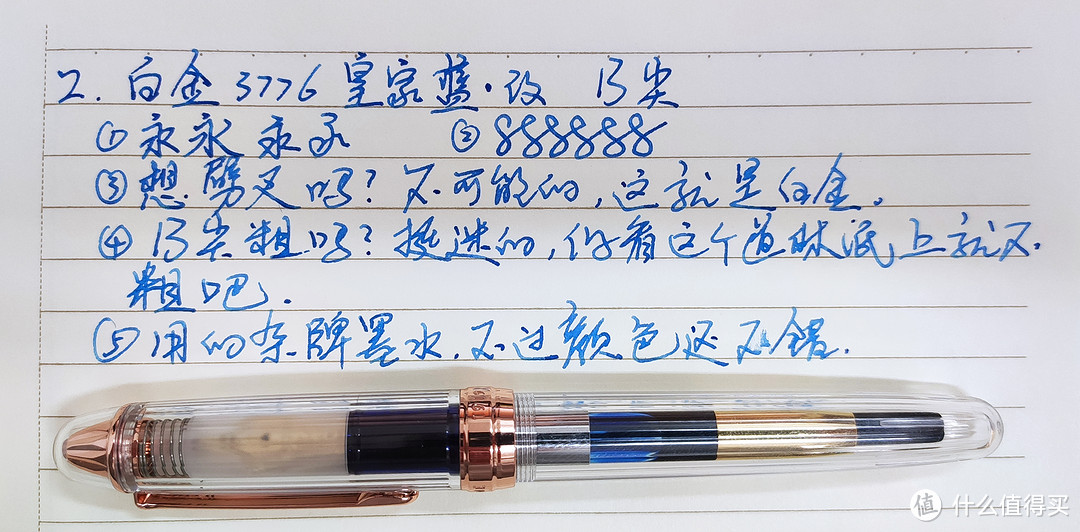 2. 白金3776 皇家蓝·改 B尖
①永永永永 ②888888
③想劈叉吗?不可能的,这就是白金。
④B尖粗吗?挺迷的,你看这个道林纸上就不
粗吧.
⑤用的杂牌墨水.不过颜色还不错.
值 什么值得买